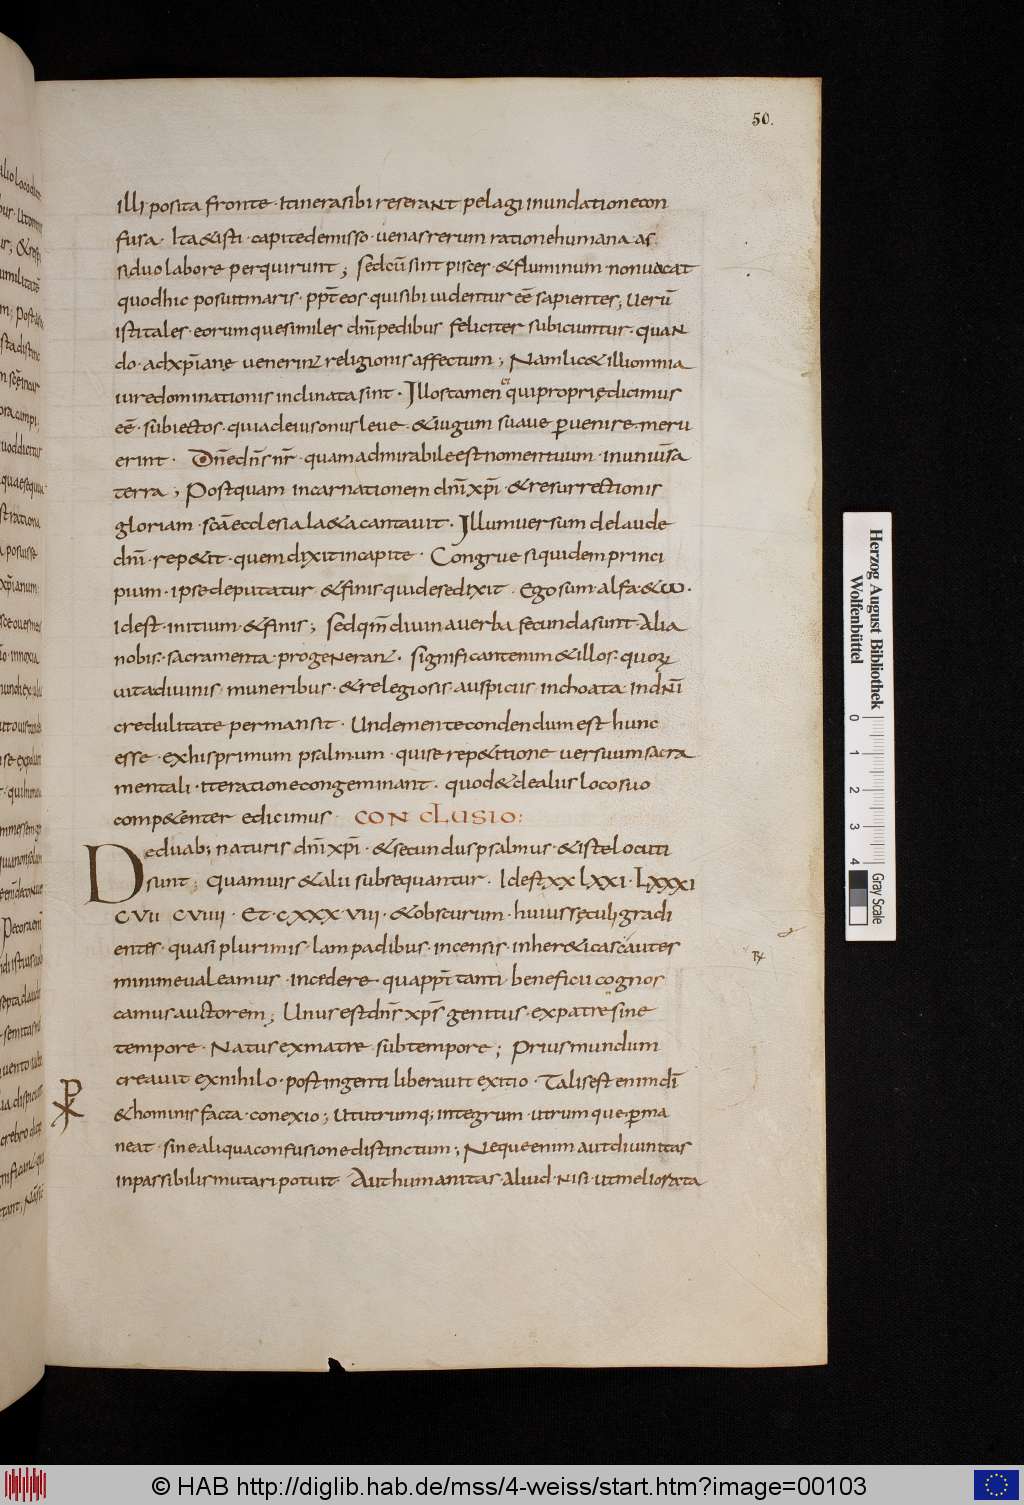 50.
illi posita fronte · Itinera sibi reserant pelagi inundatione con
fusa · Ita & isti · capite demisso · uenas rerum ratione humana as
siduo labore perquirunt; sed cū sint pisces · & fluminum · non uacat
quod hic posuit maris · ppt̄ eos · qui sibi uidentur eē sapientes; Uerū
isti tales · eorumque similes dn̄i pedibus feliciter subiciuntur · quan
do · ad xp̄ianę uenerint religionis affectum; Nam lic& illi omnia
iure dominationis inclinata sint · Illos tamen ei qui proprię dicimus
eē · subiectos · qui ad eius onus leue · & iugum suaue puenire · meru
erint · Dn̄e dn̄s nr̄ · quam admirabile est nomen tuum · in uniuersa
terra; Postquam incarnationem dn̄i xp̄i · & resurrectionis
gloriam · sc̄a ecclesia la&a cantauit · Illum uersum de laude
dn̄i · rep&it · quem dixit in capite · Congrue siquidem princi
pium · ipse deputatur · & finis qui de se dixit · Ego sum · alfa · & ω ·
Id est · initium · & finis; sed qm̄ diuina uerba fecunda sunt · Alia
nobis · sacramenta · progenerant · significant enim & illos · quorum
uita diuinis · muneribus · & relegiosis · auspiciis · inchoata in dn̄i
credulitate permansit · Unde mente condendum est hunc
esse · ex his primum psalmum · qui se rep&itione uersuum sacra
mentali · iteratione congeminant · quod & de aliis loco suo
comp&enter edicimus · CONCLUSIO:
De duab; naturis dn̄i xp̄i · & secundus psalmus · & iste locuti
sunt; quamuis & alii subsequantur · Id est xx lxxi · Lxxxi
CVii CViiii · Et · cxxxviii · & obscurum · huius sęculi gradi
entes · quasi plurimis · lampadibus · incensis · in her&icas cautes
minime ualeamus · incedere · quappt̄ tanti beneficii cognos
camus auctorem; Unus est dn̄s xp̄s genitus · ex patre sine
tempore · Natus ex matre · sub tempore; Prius mundum
creauit ex nihilo · post ingenti liberauit exitio · Talis est enim dī
& hominis facta · conexio; Ut utrumq; integrum · utrumque · pma
neat · sine aliqua confusione distinctum; Neque enim aut diuinitas
inpassibilis mutari potuit Aut humanitas · aliud · nisi · ut meliorata
Herzog August Bibliothek
Wolfenbüttel
0 1 2 3 4
Gray Scale
© HAB http://diglib.hab.de/mss/4-weiss/start.htm?image=00103